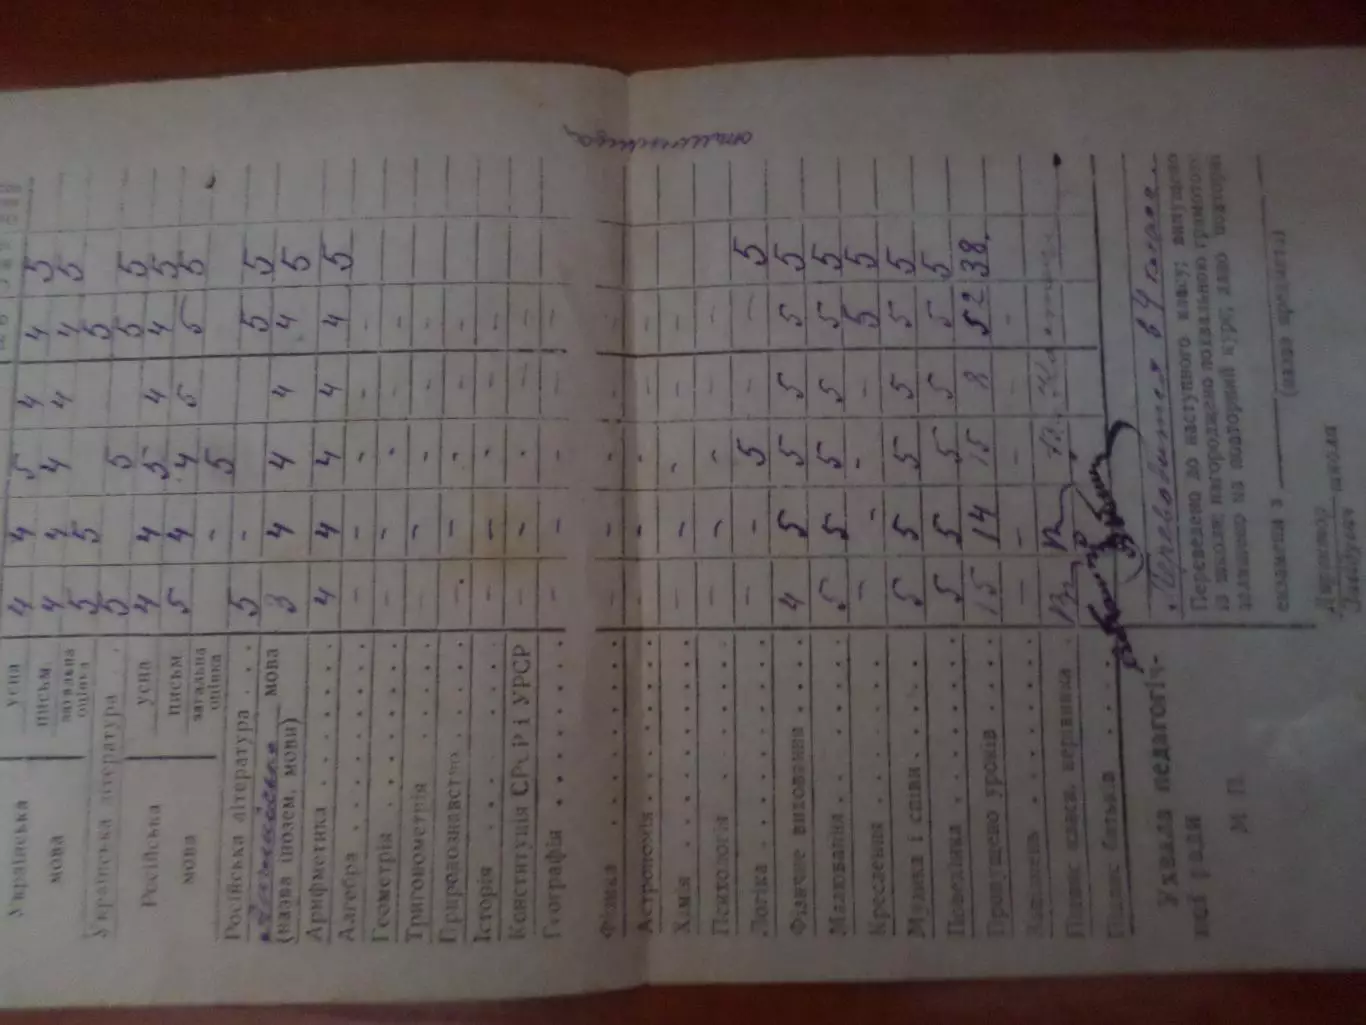 Українська мова
усна 4 4 5 4 4 5
письм. 4 4 4 4 4 5
загальна оцінка 5 5 5
Українська література . . 5 5 5 5
Російська мова
усна 4 4 5 4 4 5
письм. 5 4 4 5 5 5
загальна оцінка - - 5
Російська література . . . 5 - 5 5
мова
(назва іноземн. мови) 3 4 4 4 4 5
Арифметика . . . . . 4 4 4 4 4 5
Алгебра . . . . . - - - - -
Геометрія . . . . . - - - - -
Тригонометрія . . . . - - - - -
Природознавство . . . - - - - -
Історія . . . . . - - - - -
Конституція СРСР і УРСР - - - - -
Географія . . . . . - - - - -
Фізика . . . . . - - - - -
Астрономія . . . . . - - - - -
Хімія . . . . . - - - - -
Психологія . . . . . - - - - -
Логіка . . . . . - - 5 - - 5
Фізичне виховання . . 4 5 5 5 5 5
Малювання . . . . . 5 5 5 5 5 5
Креслення . . . . . - - - - 5 5
Музика і співи . . . . 5 5 5 5 5 5
Поведінка . . . . . 5 5 5 5 5 5
Пропущено уроків . . . 15 14 15 8 52 38.
Запізнень . . . . . - - - - -
Підпис класн. керівника .
Підпис батьків . . . .
Ухвала педагогічної ради
М. П.
Переведено до наступного класу; випущено
із школи; нагороджено похвальною грамотою
залишено на повторний курс; дано повторні
екзамени з
(назва предмета)
Директор школи
Завідувач
отличница